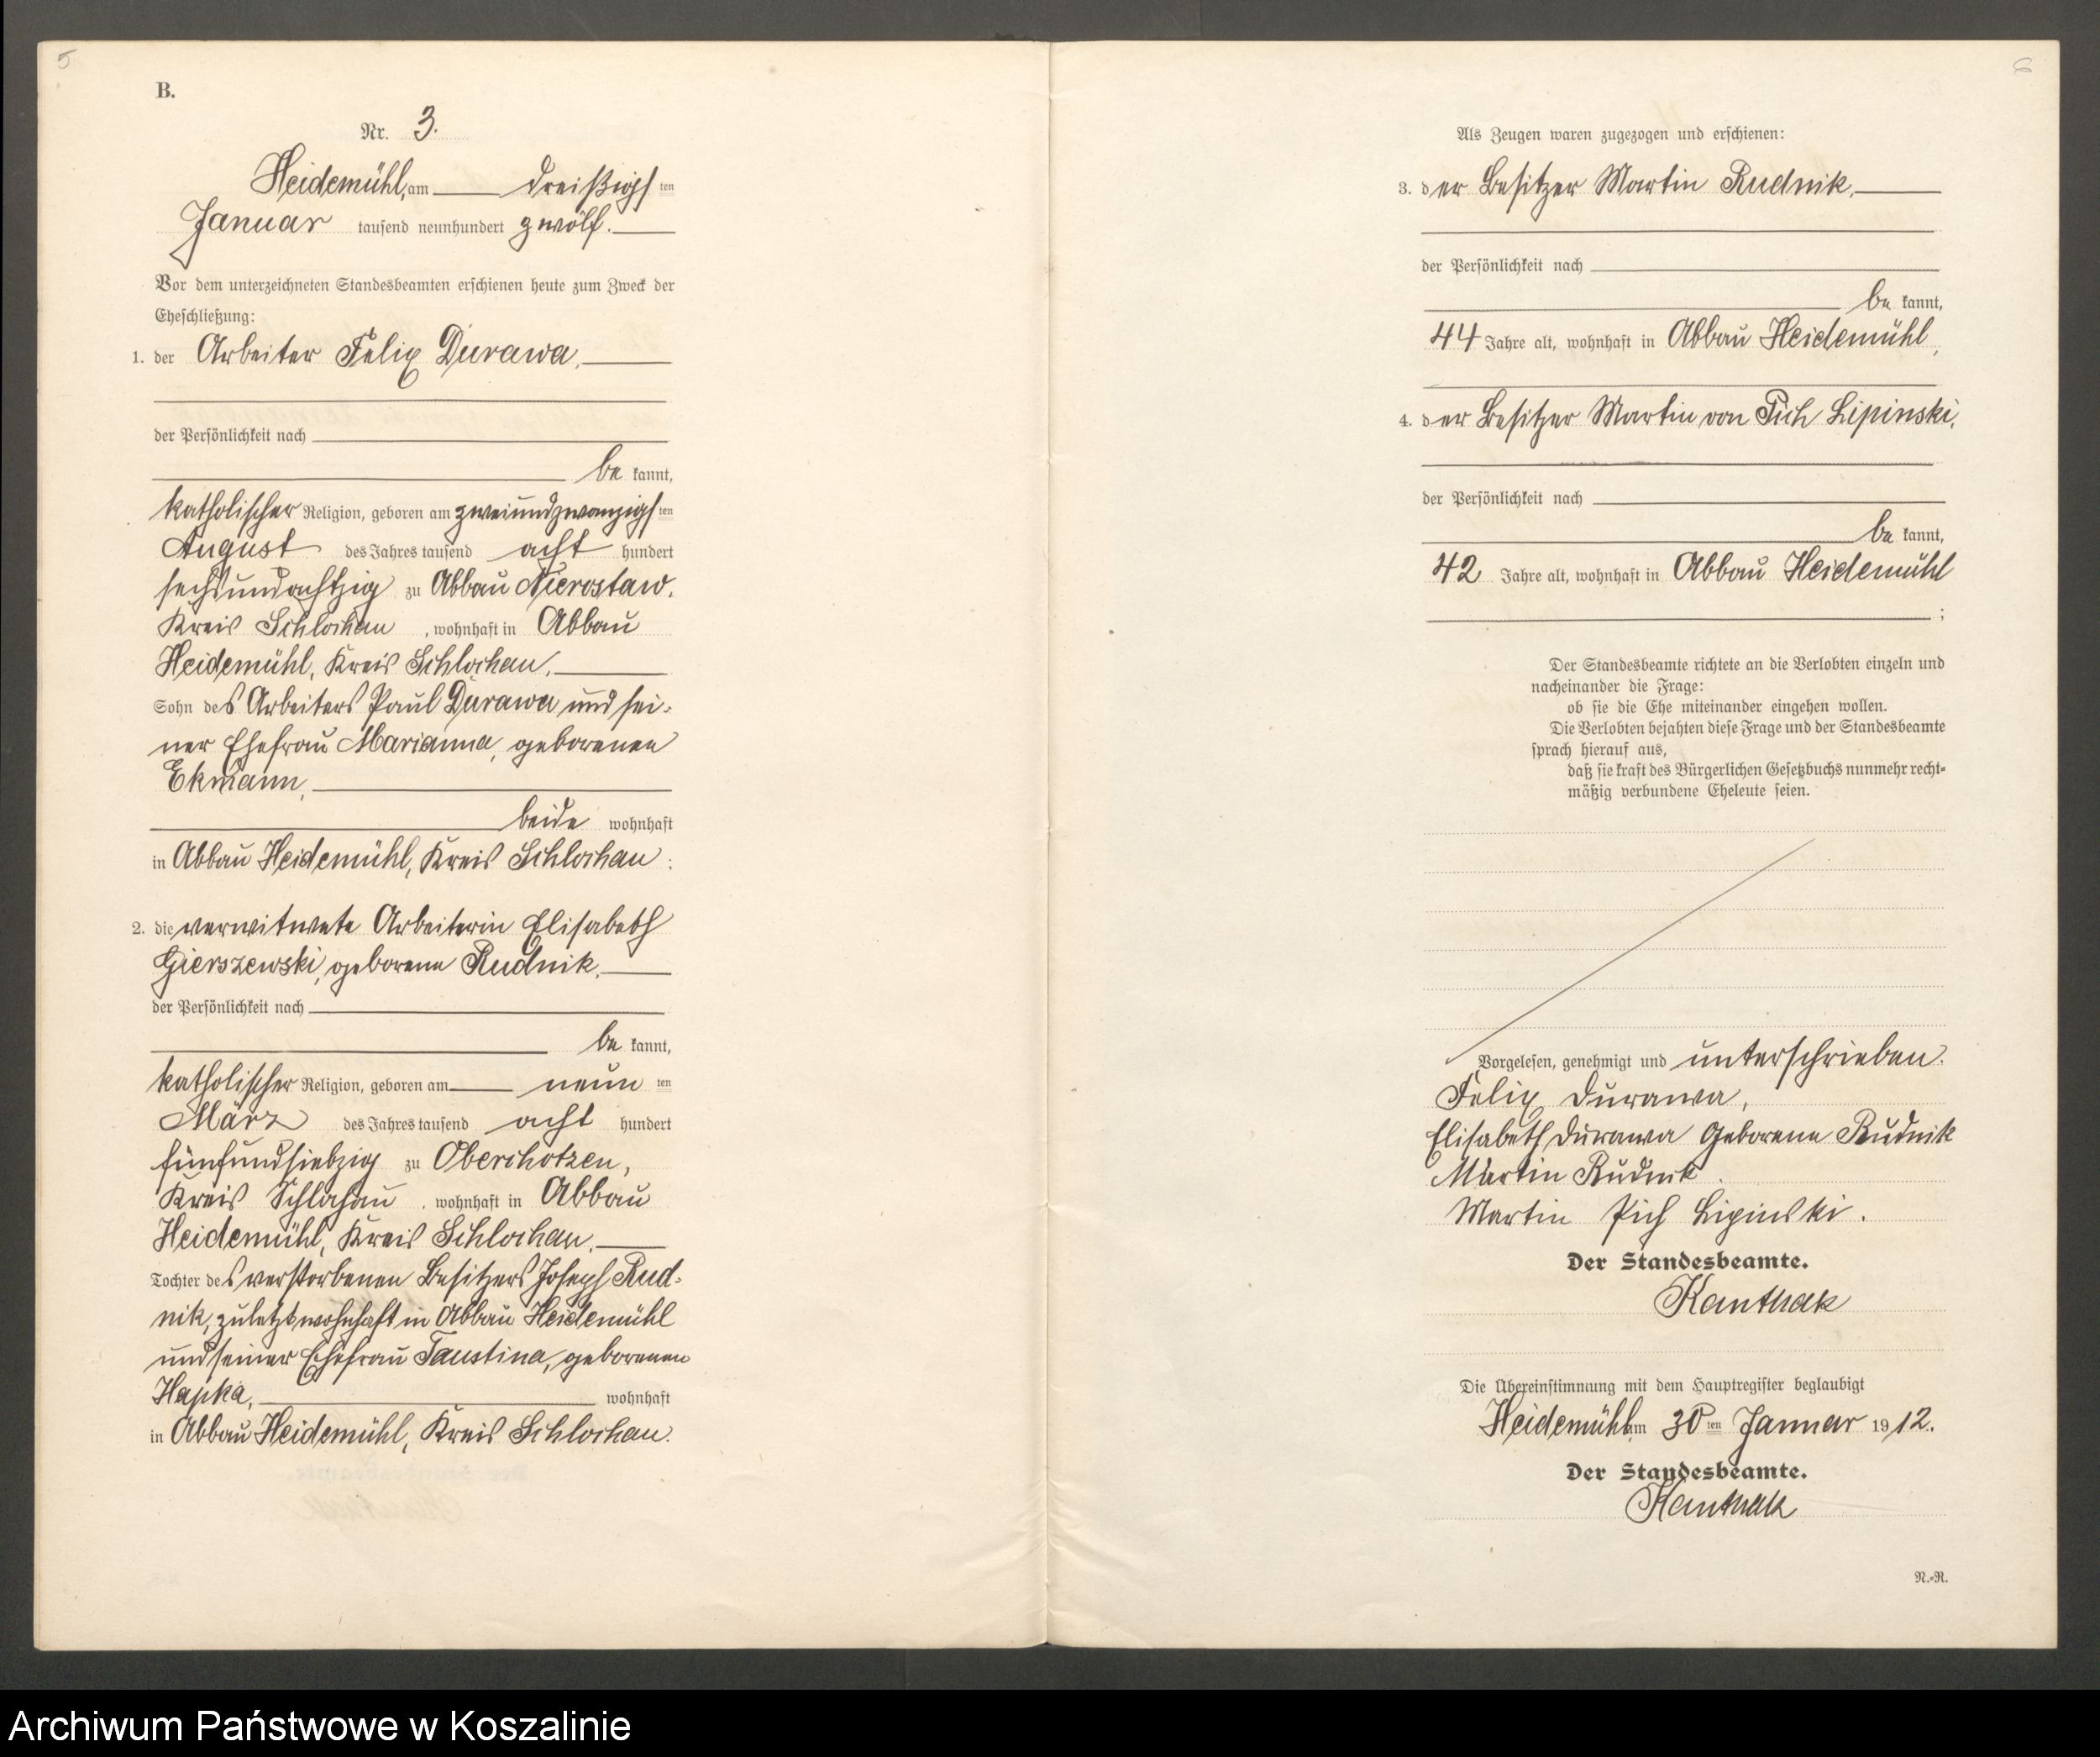 5
B.
Nr. 3.
Heidemühl, am dreißigsten
Januar tausend neunhundert zwölf.
Vor dem unterzeichneten Standesbeamten erschienen heute zum Zweck der
Eheschließung:
1. der Arbeiter Felix Durawa,
der Persönlichkeit nach
be kannt,
katholischer Religion, geboren am zweiundzwanzigsten
August des Jahres tausend acht hundert
sechsundachtzig zu Abbau Nierostaw,
Kreis Schlochau, wohnhaft in Abbau
Heidemühl, Kreis Schlochau,
Sohn des Arbeiters Paul Durawa und sei-
ner Ehefrau Marianna, geborenen
Ekmann,
beide wohnhaft
in Abbau Heidemühl, Kreis Schlochau;
2. die verwitwete Arbeiterin Elisabeth
Gierszewski, geborene Rudnik,
der Persönlichkeit nach
be kannt,
katholischer Religion, geboren am neun ten
März des Jahres tausend acht hundert
fünfundsiebzig zu Oberchotzen,
Kreis Schlochau, wohnhaft in Abbau
Heidemühl, Kreis Schlochau,
Tochter des verstorbenen Besitzers Joseph Rud-
nik, zuletzt wohnhaft in Abbau Heidemühl
und seiner Ehefrau Faustina, geborenen
Hapka, wohnhaft
in Abbau Heidemühl, Kreis Schlochau.
6
Als Zeugen waren zugezogen und erschienen:
3. der Besitzer Martin Rudnik,
der Persönlichkeit nach
be kannt,
44 Jahre alt, wohnhaft in Abbau Heidemühl,
4. der Besitzer Martin von Pich Lipinski,
der Persönlichkeit nach
be kannt,
42 Jahre alt, wohnhaft in Abbau Heidemühl
;
Der Standesbeamte richtete an die Verlobten einzeln und
nacheinander die Frage:
ob sie die Ehe miteinander eingehen wollen.
Die Verlobten bejahten diese Frage und der Standesbeamte
sprach hierauf aus,
daß sie kraft des Bürgerlichen Gesetzbuchs nunmehr recht-
mäßig verbundene Eheleute seien.
Vorgelesen, genehmigt und unterschrieben.
Felix Durawa,
Elisabeth Durawa Geborene Rudnik
Martin Rudnik.
Martin Pich Lipinski.
Der Standesbeamte.
Kanthak
Die Übereinstimmung mit dem Hauptregister beglaubigt
Heidemühl, am 30ten Januar 1912.
Der Standesbeamte.
Kanthak
N.-R.
Archiwum Państwowe w Koszalinie